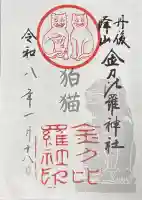 丹後
峰山
金刀比羅神社
狛猫
令和八年一月十八日
金刀比
羅社印